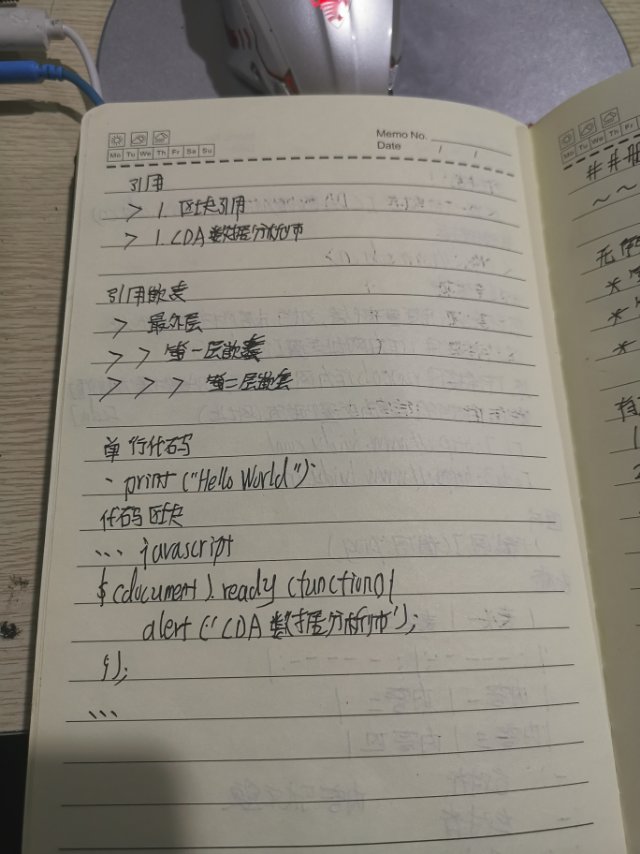 Memo No.
Date / /
Mo Tu We Th Fr Sa Su
引用
> 1. 区块引用
> 1. CDA 数据分析师
引用嵌套
> 最外层
> > 第一层嵌套
> > > 第二层嵌套
单行代码
` print ("Hello World");`
代码区块
``` javascript
$(document).ready(function(){
alert ('CDA 数据分析师');
});
```
Mo Tu We Th Fr
##
~~
*
*
*
1
2